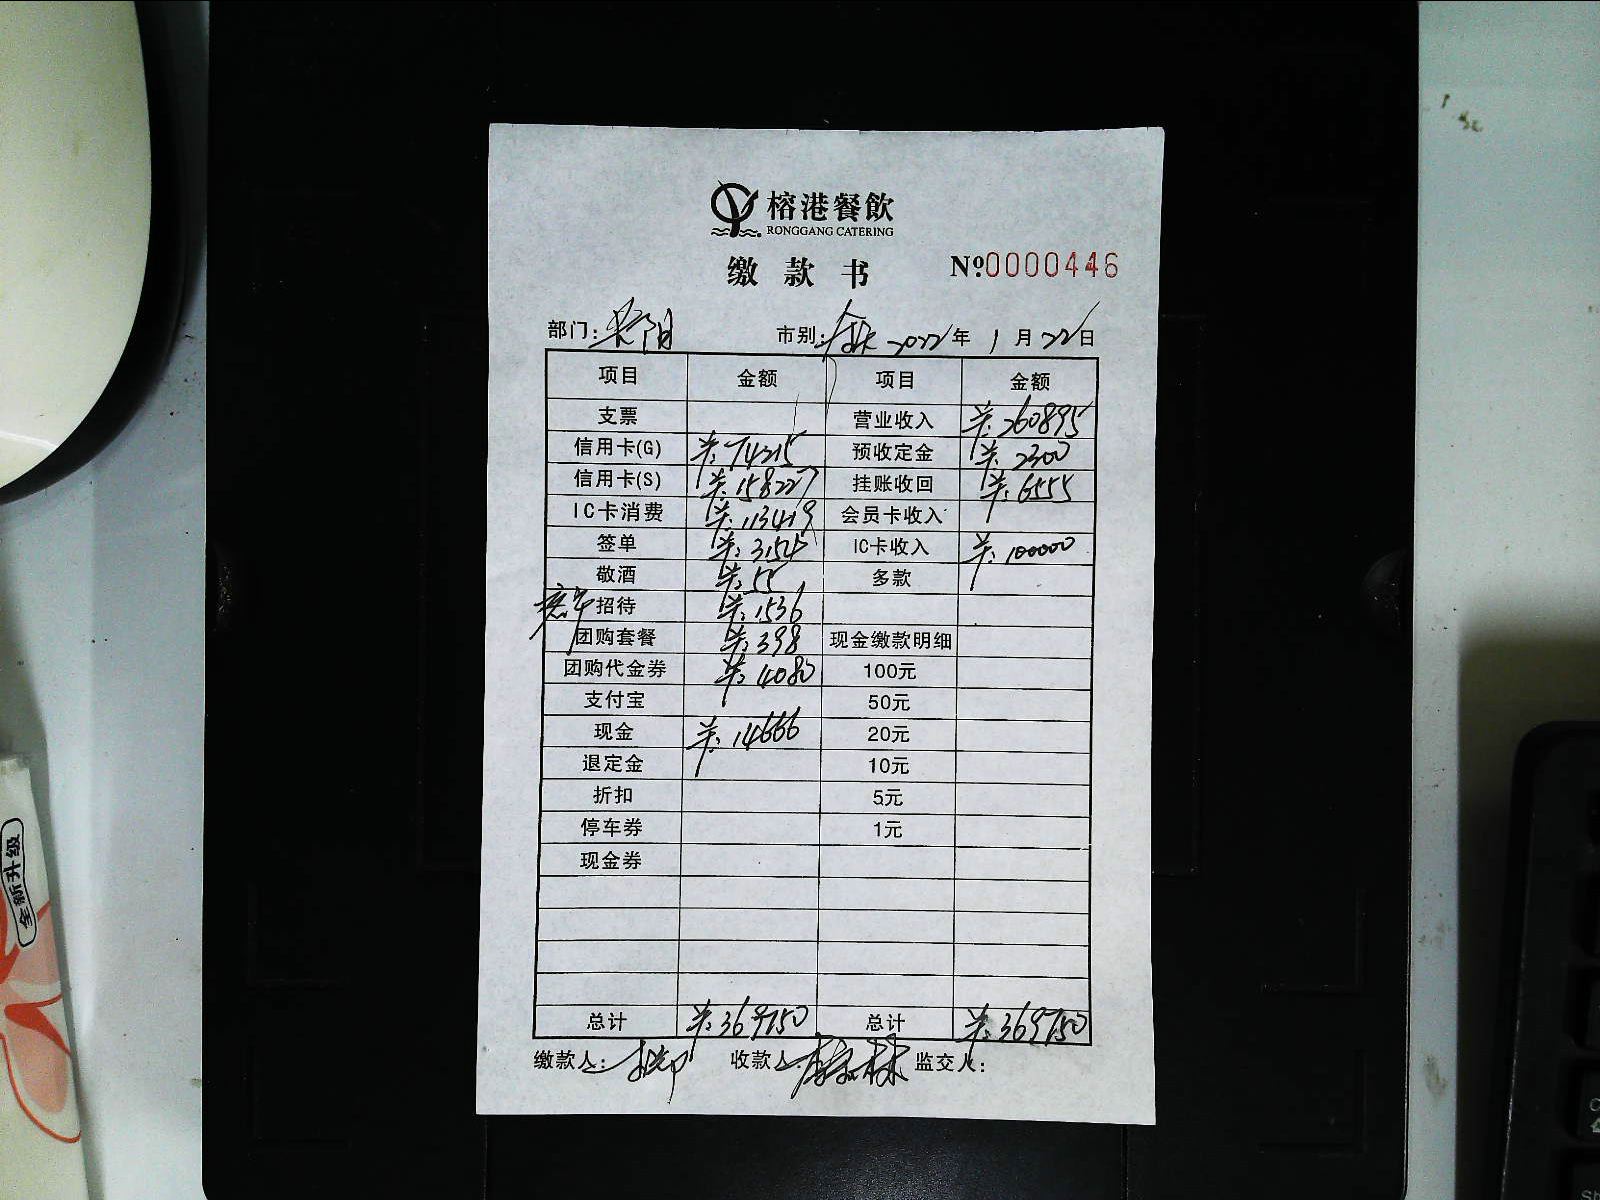 榕港餐飲
RONGGANG CATERING
缴款书
No.0000446
部门: 市别: 2022年 1月 22日
项目 金额 项目 金额
支票 营业收入 ¥:260895
信用卡(G) ¥:74215 预收定金 ¥:2300
信用卡(S) ¥:158227 挂账收回 ¥:6555
IC卡消费 ¥:113419 会员卡收入
签单 ¥:3154 IC卡收入 ¥:100000
敬酒 ¥:55 多款
招待 ¥:1536
团购套餐 ¥:398 现金缴款明细
团购代金券 ¥:4080 100元
支付宝 50元
现金 ¥:14666 20元
退定金 10元
折扣 5元
停车券 1元
现金券
总计 ¥:369750 总计 ¥:369750
缴款人: 收款人: 监交人:
全新升级